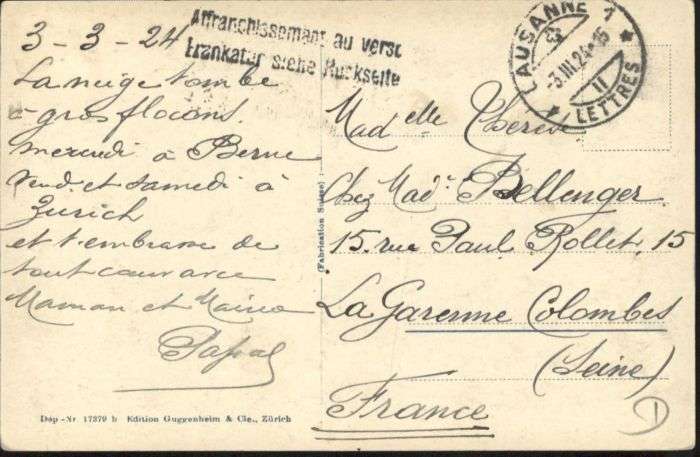 3-3-24
La neige tombe
à gros flocons.
mercredi à Berne
Vend et samedi à
Zurich
et t'embrasse de
tout cœur avec
Maman et
Affranchissement au verso
Frankatur siehe Rückseite
LAUSANNE 1
-3.III.24-16
II
LETTRES
Madelle Thérèse
Chez Made Bellenger
15, rue Paul Rollet, 15
La Garenne Colombes
(Seine)
France
(Fabrication Suisse)
Dép-Nr 17379 b Edition Guggenheim & Cie., Zürich